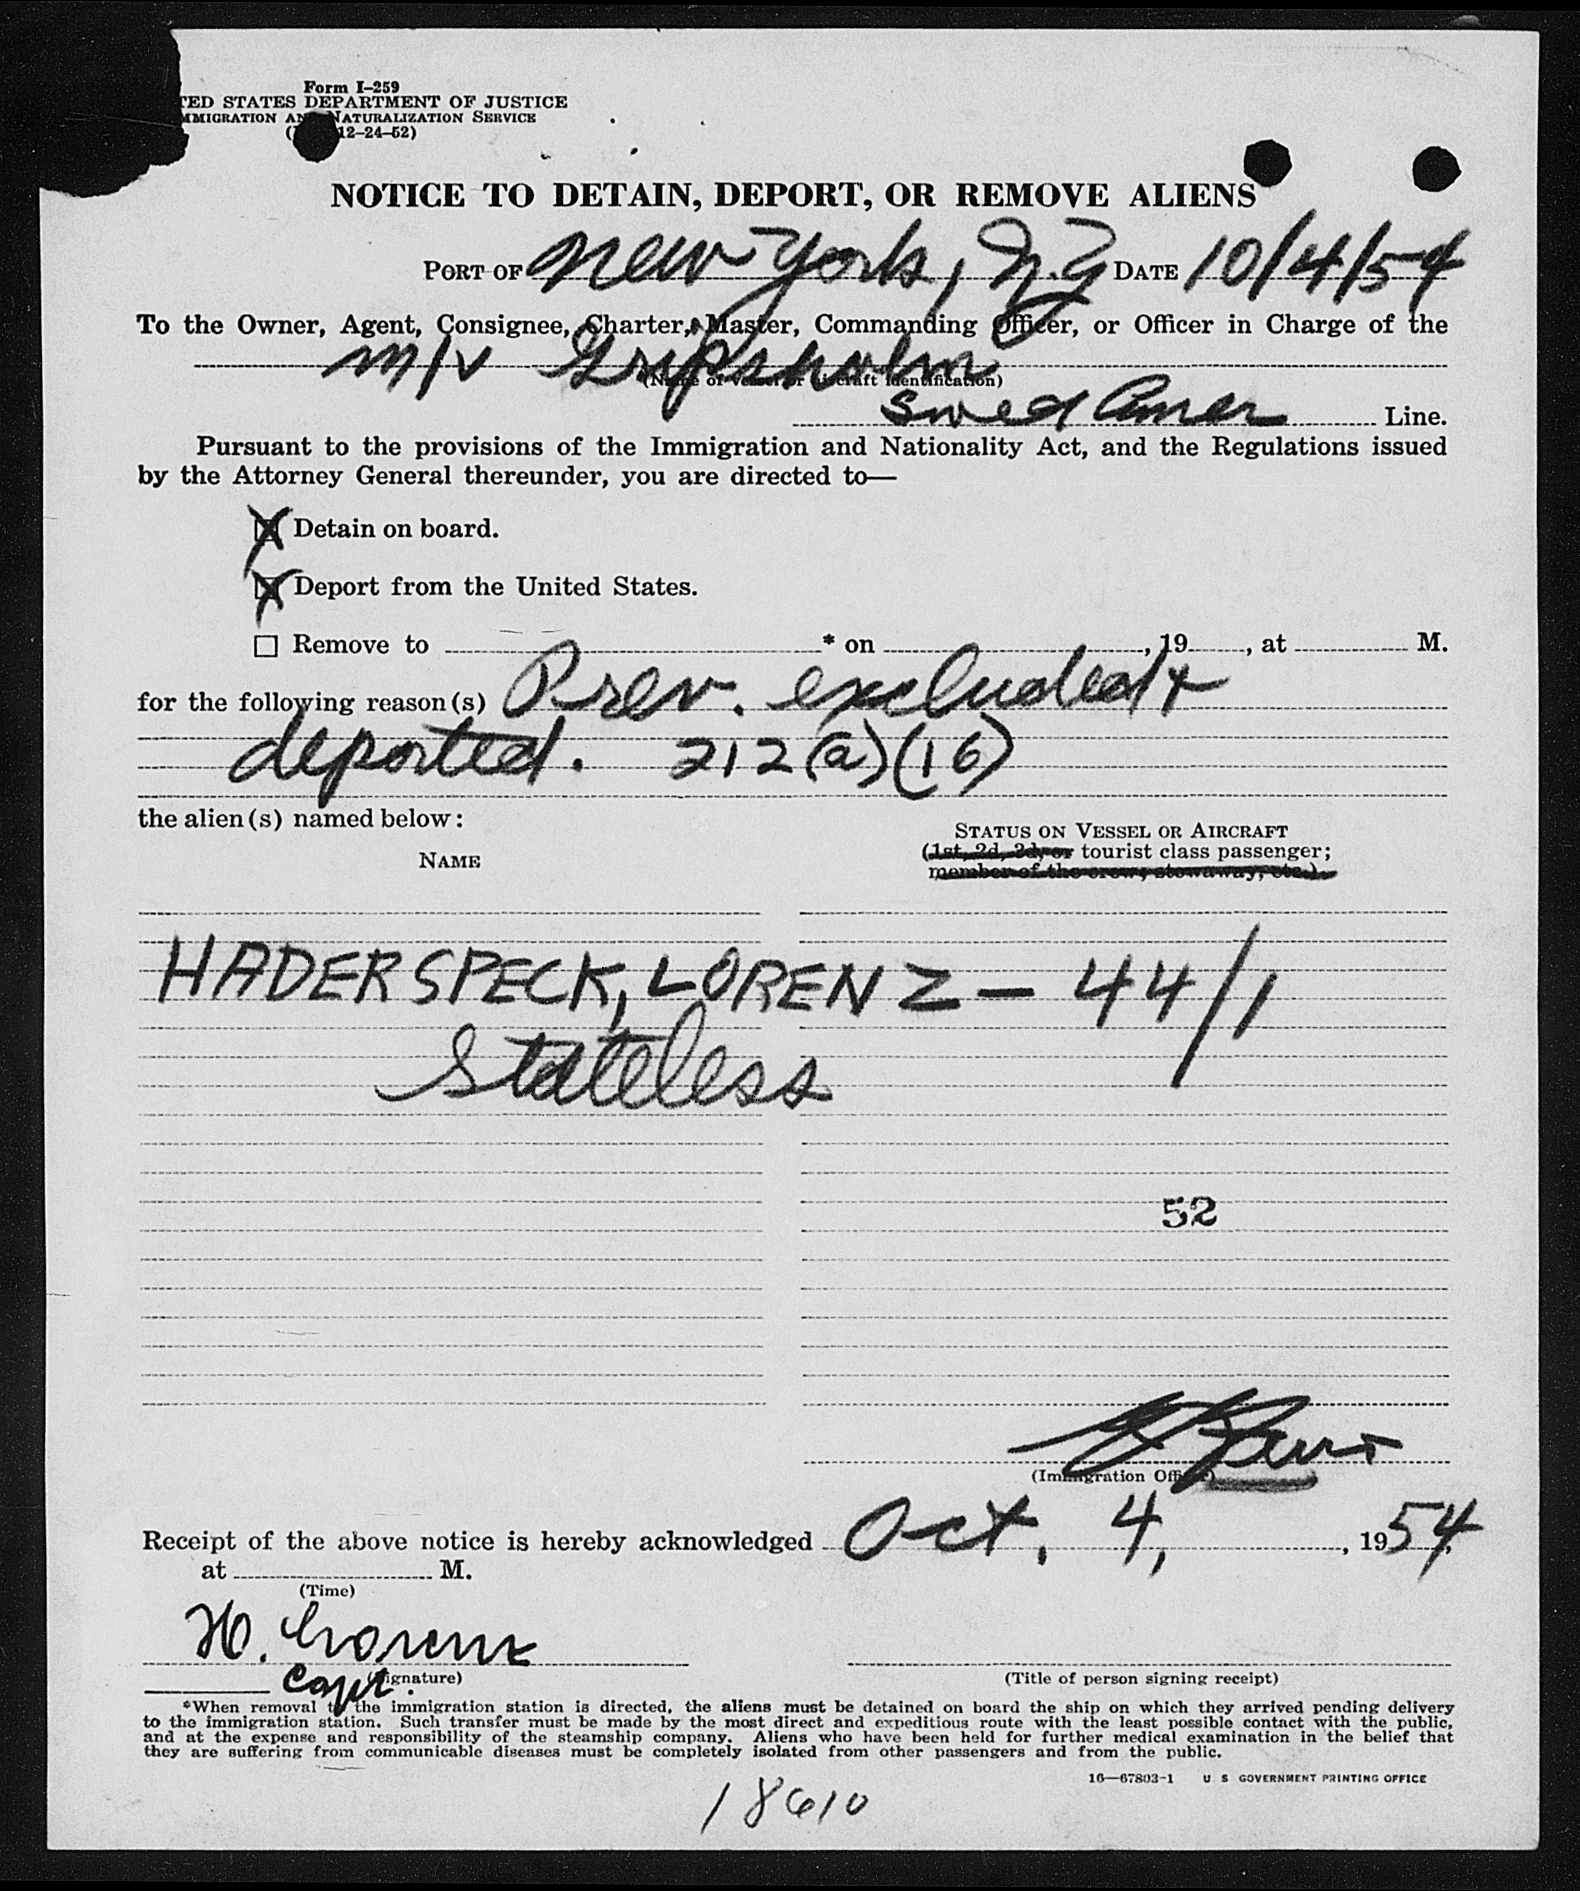 Form I-259
TED STATES DEPARTMENT OF JUSTICE
MMIGRATION AN NATURALIZATION SERVICE
( 12-24-52)
NOTICE TO DETAIN, DEPORT, OR REMOVE ALIENS
PORT OF New York, N.Y. DATE 10/4/54
To the Owner, Agent, Consignee, Charter, Master, Commanding Officer, or Officer in Charge of the
M/V Gripsholm
(Name of vessel or aircraft identification)
Swed Amer Line.
Pursuant to the provisions of the Immigration and Nationality Act, and the Regulations issued
by the Attorney General thereunder, you are directed to—
☒ Detain on board.
☒ Deport from the United States.
☐ Remove to * on , 19 , at M.
for the following reason(s) Prev. excluded +
deported. 212(a)(16)
the alien(s) named below:
STATUS ON VESSEL OR AIRCRAFT
NAME
(1st, 2d, 3d, or tourist class passenger;
member of the crew; stowaway, etc.)
HADERSPECK, LORENZ — 44/1
Stateless
52
(Immigration Officer)
Receipt of the above notice is hereby acknowledged Oct. 4, , 1954,
at M.
(Time)
H. Lorenz
Capt. (Signature)
(Title of person signing receipt)
*When removal to the immigration station is directed, the aliens must be detained on board the ship on which they arrived pending delivery
to the immigration station. Such transfer must be made by the most direct and expeditious route with the least possible contact with the public,
and at the expense and responsibility of the steamship company. Aliens who have been held for further medical examination in the belief that
they are suffering from communicable diseases must be completely isolated from other passengers and from the public.
16—67803-1 U S GOVERNMENT PRINTING OFFICE
18610